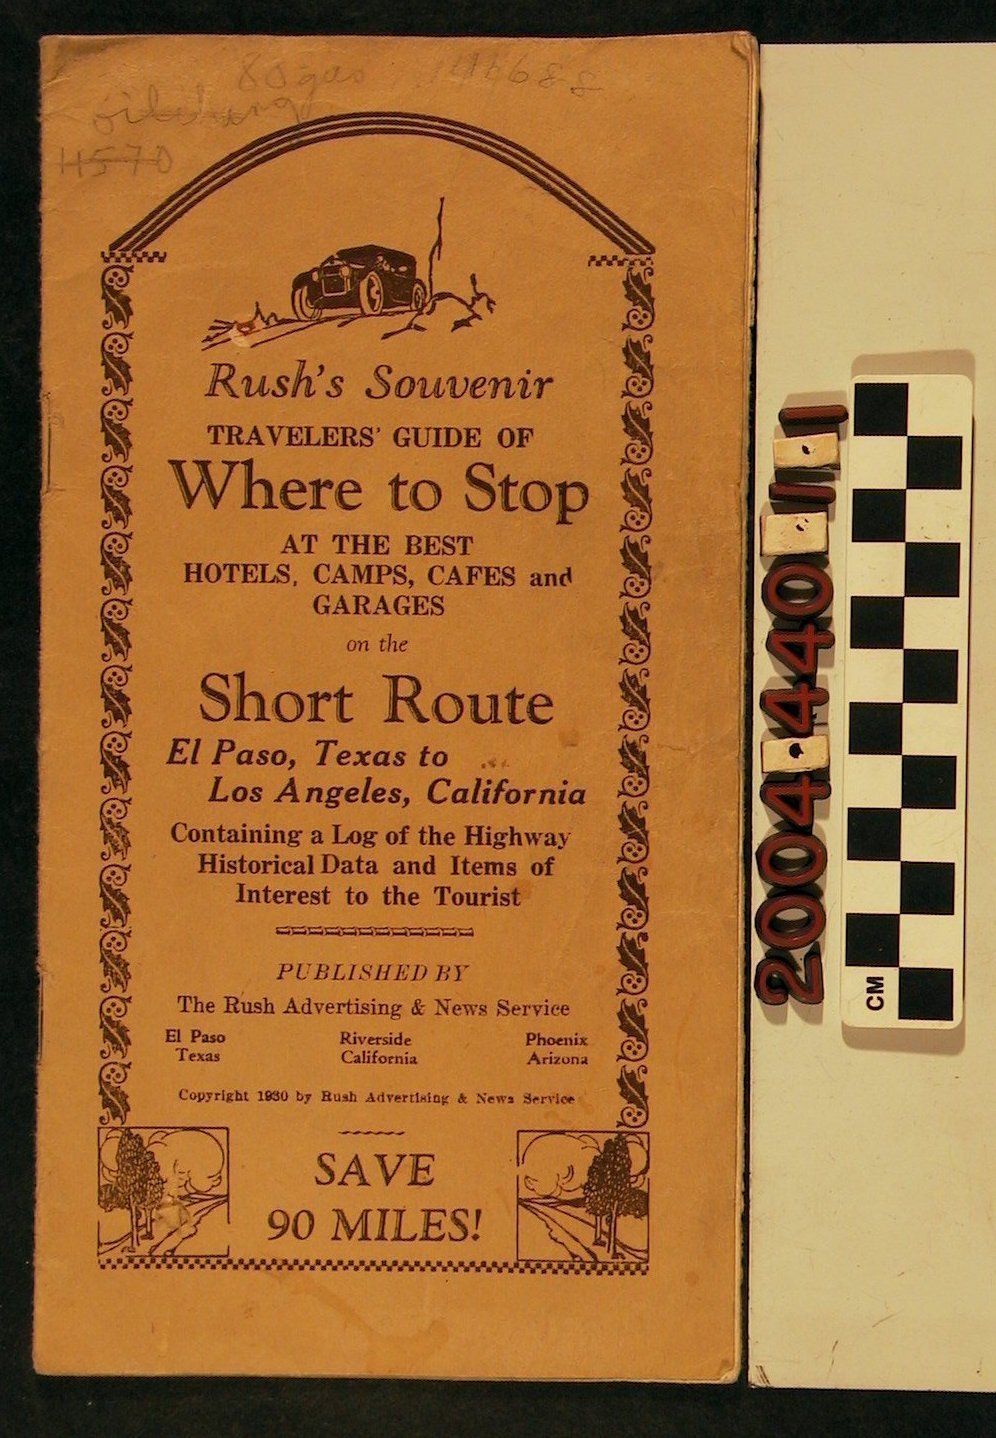 80 gas 144688
oilchang
H570
Rush's Souvenir
TRAVELERS' GUIDE OF
Where to Stop
AT THE BEST
HOTELS, CAMPS, CAFES and
GARAGES
on the
Short Route
El Paso, Texas to
Los Angeles, California
Containing a Log of the Highway
Historical Data and Items of
Interest to the Tourist
PUBLISHED BY
The Rush Advertising & News Service
El Paso Riverside Phoenix
Texas California Arizona
Copyright 1930 by Rush Advertising & News Service
SAVE
90 MILES!
2004.440.1.1
CM